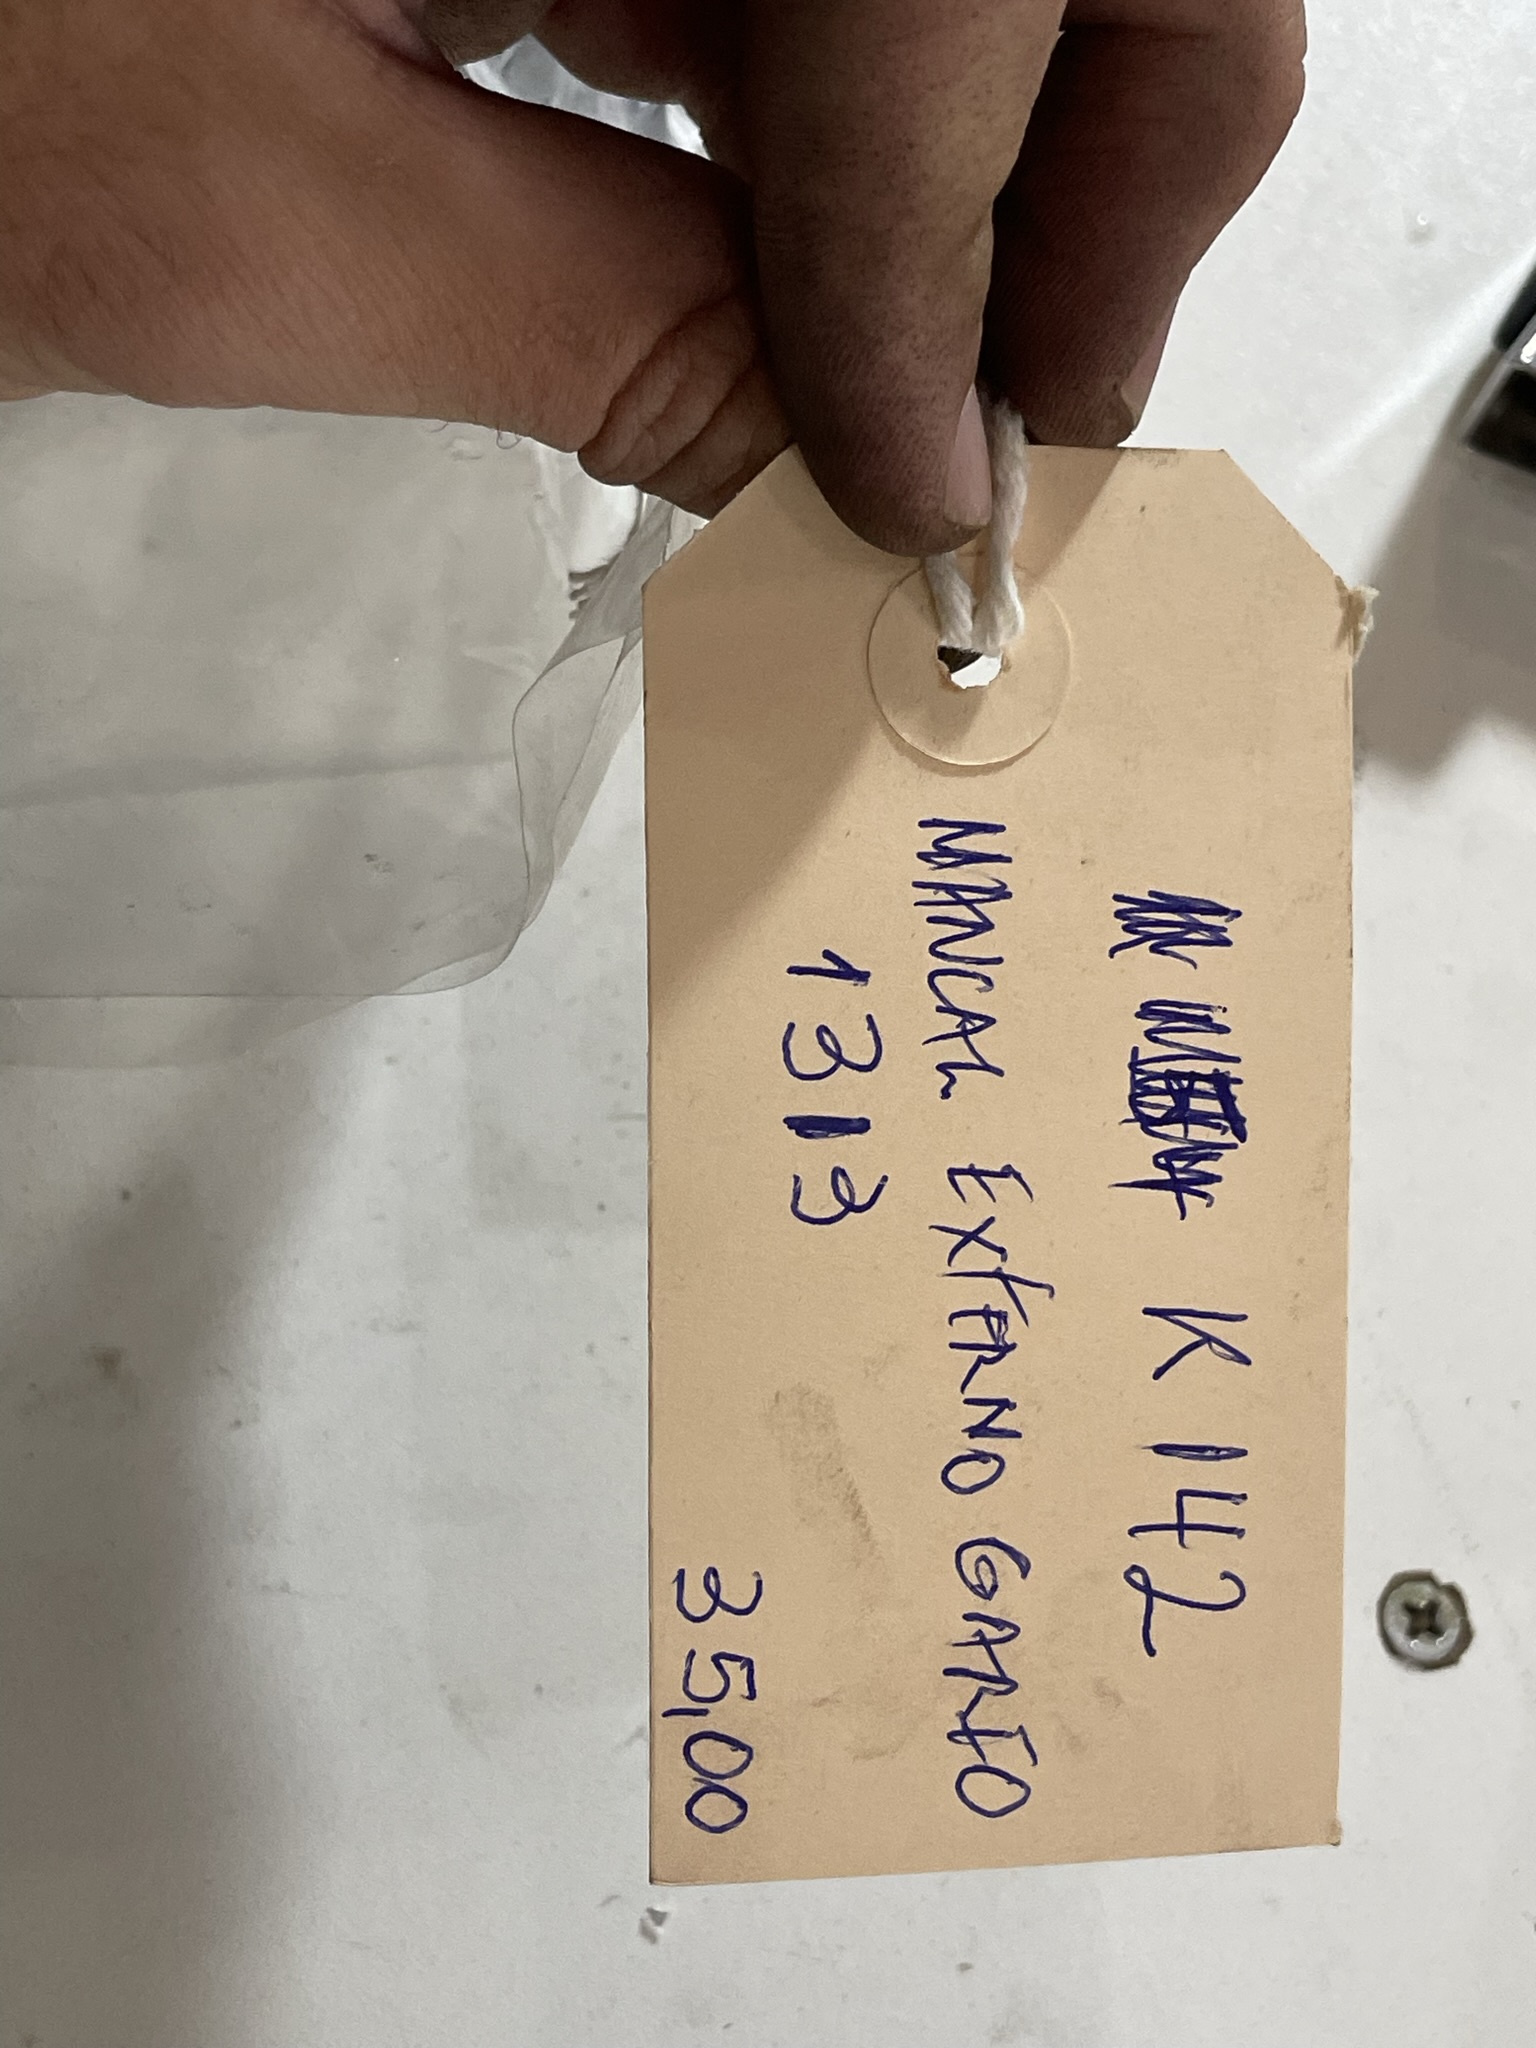 K 142
MANCAL EXTERNO GARFO
1313
35,00